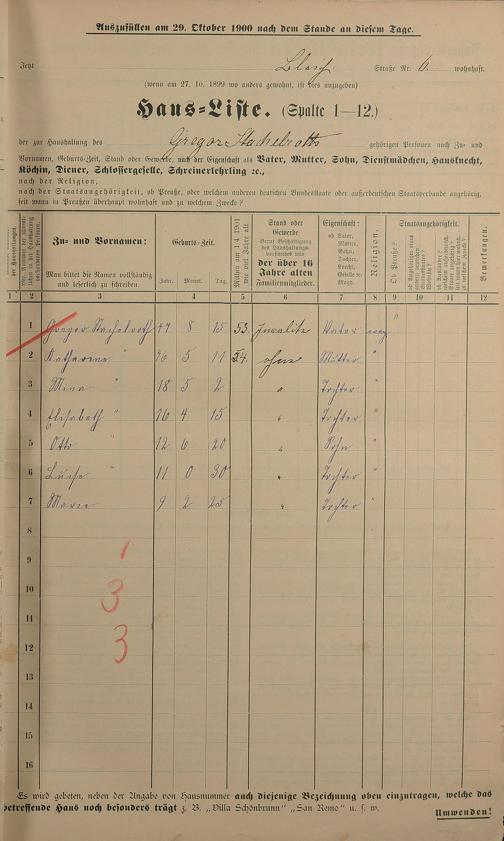 Auszufüllen am 29. Oktober 1900 nach dem Stande an diesem Tage.
Jetzt Bleich Straße Nr. 6. wohnhaft.
(wenn am 27. 10. 1899 wo anders gewohnt, ist dies anzugeben)
Haus-Liste. (Spalte 1—12.)
der zur Haushaltung des Gregor Stachelroth gehörigen Personen nach Zu- und
Vornamen, Geburts-Zeit, Stand oder Gewerbe, nach der Eigenschaft als Vater, Mutter, Sohn, Dienstmädchen, Hausknecht,
Köchin, Diener, Schlossergeselle, Schreinerlehrling ꝛc.,
nach der Religion,
nach der Staatsangehörigkeit, ob Preuße, oder welchem anderen deutschen Bundesstaate oder außerdeutschen Staatsverbande angehörig,
seit wann in Preußen überhaupt wohnhaft und zu welchem Zwecke?
Zu- und Vornamen:
Man bittet die Namen vollständig
und leserlich zu schreiben.
Geburts-Zeit.
Jahr. Monat. Tag.
Mithin am 1/4 1901
wie viel Jahre alt.
Stand oder
Gewerbe
der über 16
Jahre alten
Familienmitglieder.
Eigenschaft:
ob Vater,
Mutter,
Sohn,
Tochter,
Knecht,
Geselle o.
Magd.
Religion.
Staatsangehörigkeit.
Ob Preuße?
Bemerkungen.
1 2 3 4 5 6 7 8 9 10 11 12
1 Gregor Stachelroth 47 8 15 53. Invalide Vater evag "
2 Katharina " 46 5 11 54. ohne Mutter "
3 Mina " 18 5 2 " Tochter "
4 Elisabeth " 16 4 15 " Tochter "
5 Otto " 12 6 20 " Sohn "
6 Luise " 11 0 30 " Tochter "
7 Marie " 9 2 25 " Tochter "
8
9 1
10 3
11
12 3
13
14
15
16
Es wird gebeten, neben der Angabe von Hausnummer auch diejenige Bezeichnung oben einzutragen, welche das
betreffende Haus noch besonders trägt z. B. „Villa Schönbrunn" „San Remo" u. s. w.
Umwenden!